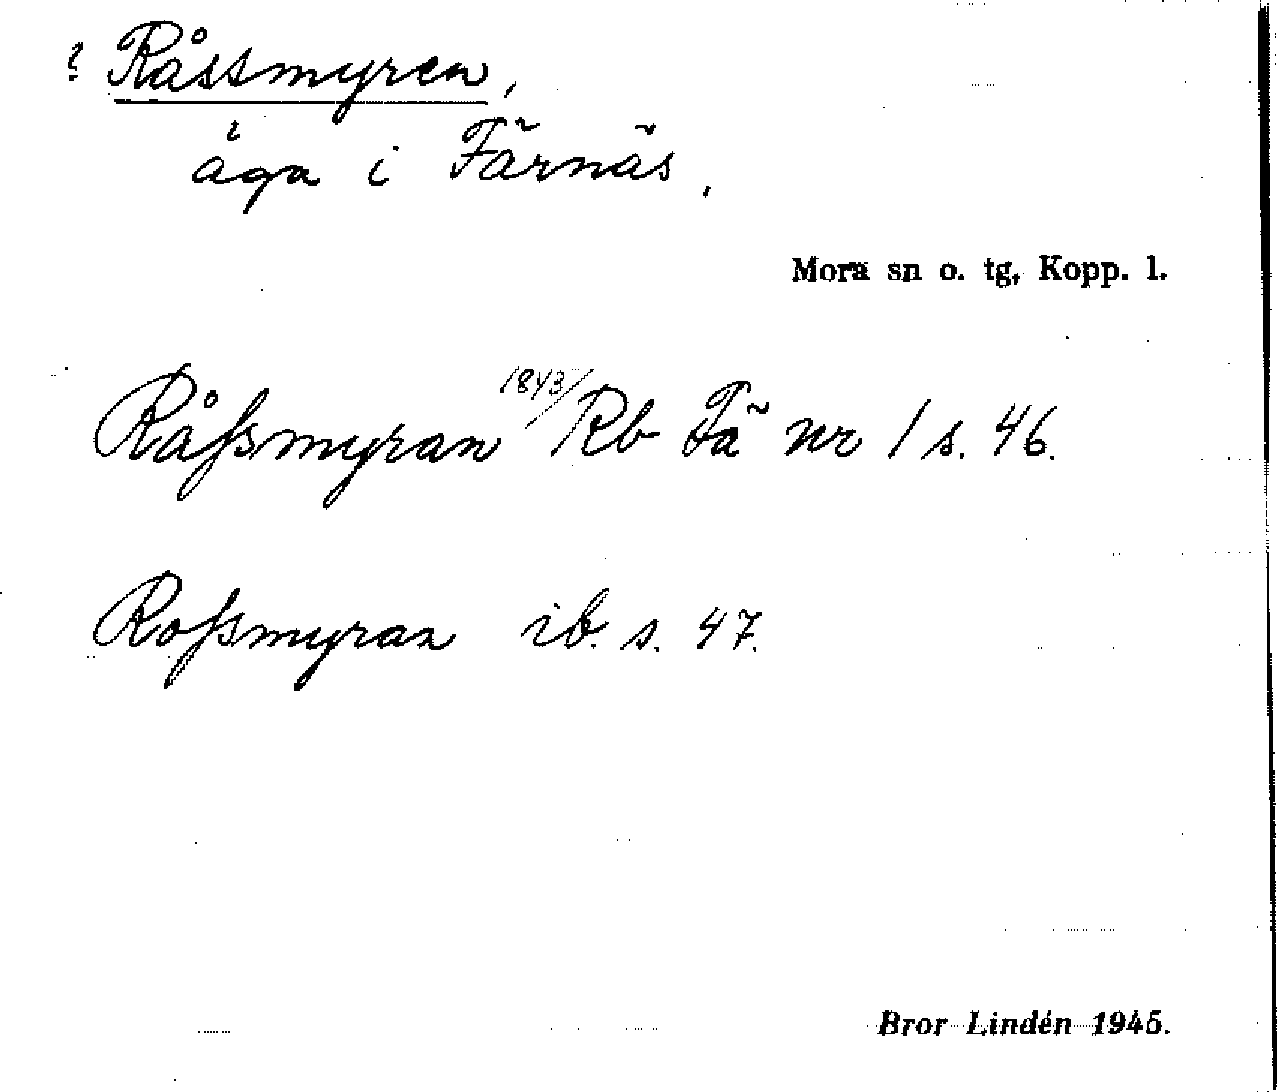 ? Råssmyren,
äga i Färnäs,
Mora sn o. tg, Kopp. l.
Råſsmyran 1843/ Rb Fä nr 1 s. 46.
Roſsmyran ib. s. 47.
Bror Lindén 1945.